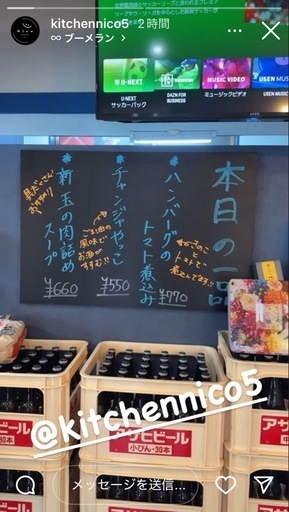 kitchennico5 2時間
∞ ブーメラン
U-NEXT
サッカーパック
DAZN FOR
BUSINESS
MUSIC VIDEO
ミュージックビデオ
USEN MUS
本日の一品
ハンバーグの
トマト煮込み
きのこと
トマトで
煮込んでます!!
¥770
チャンジャやっこ
ごま油の
風味で
お酒が
すすむ!!
¥550
新玉の肉詰め
スープ
具だくさん
¥660
@kitchennico5
アサヒビール
小びん・30本
アサヒビール
小びん・30本
アサ
小
メッセージを送信...